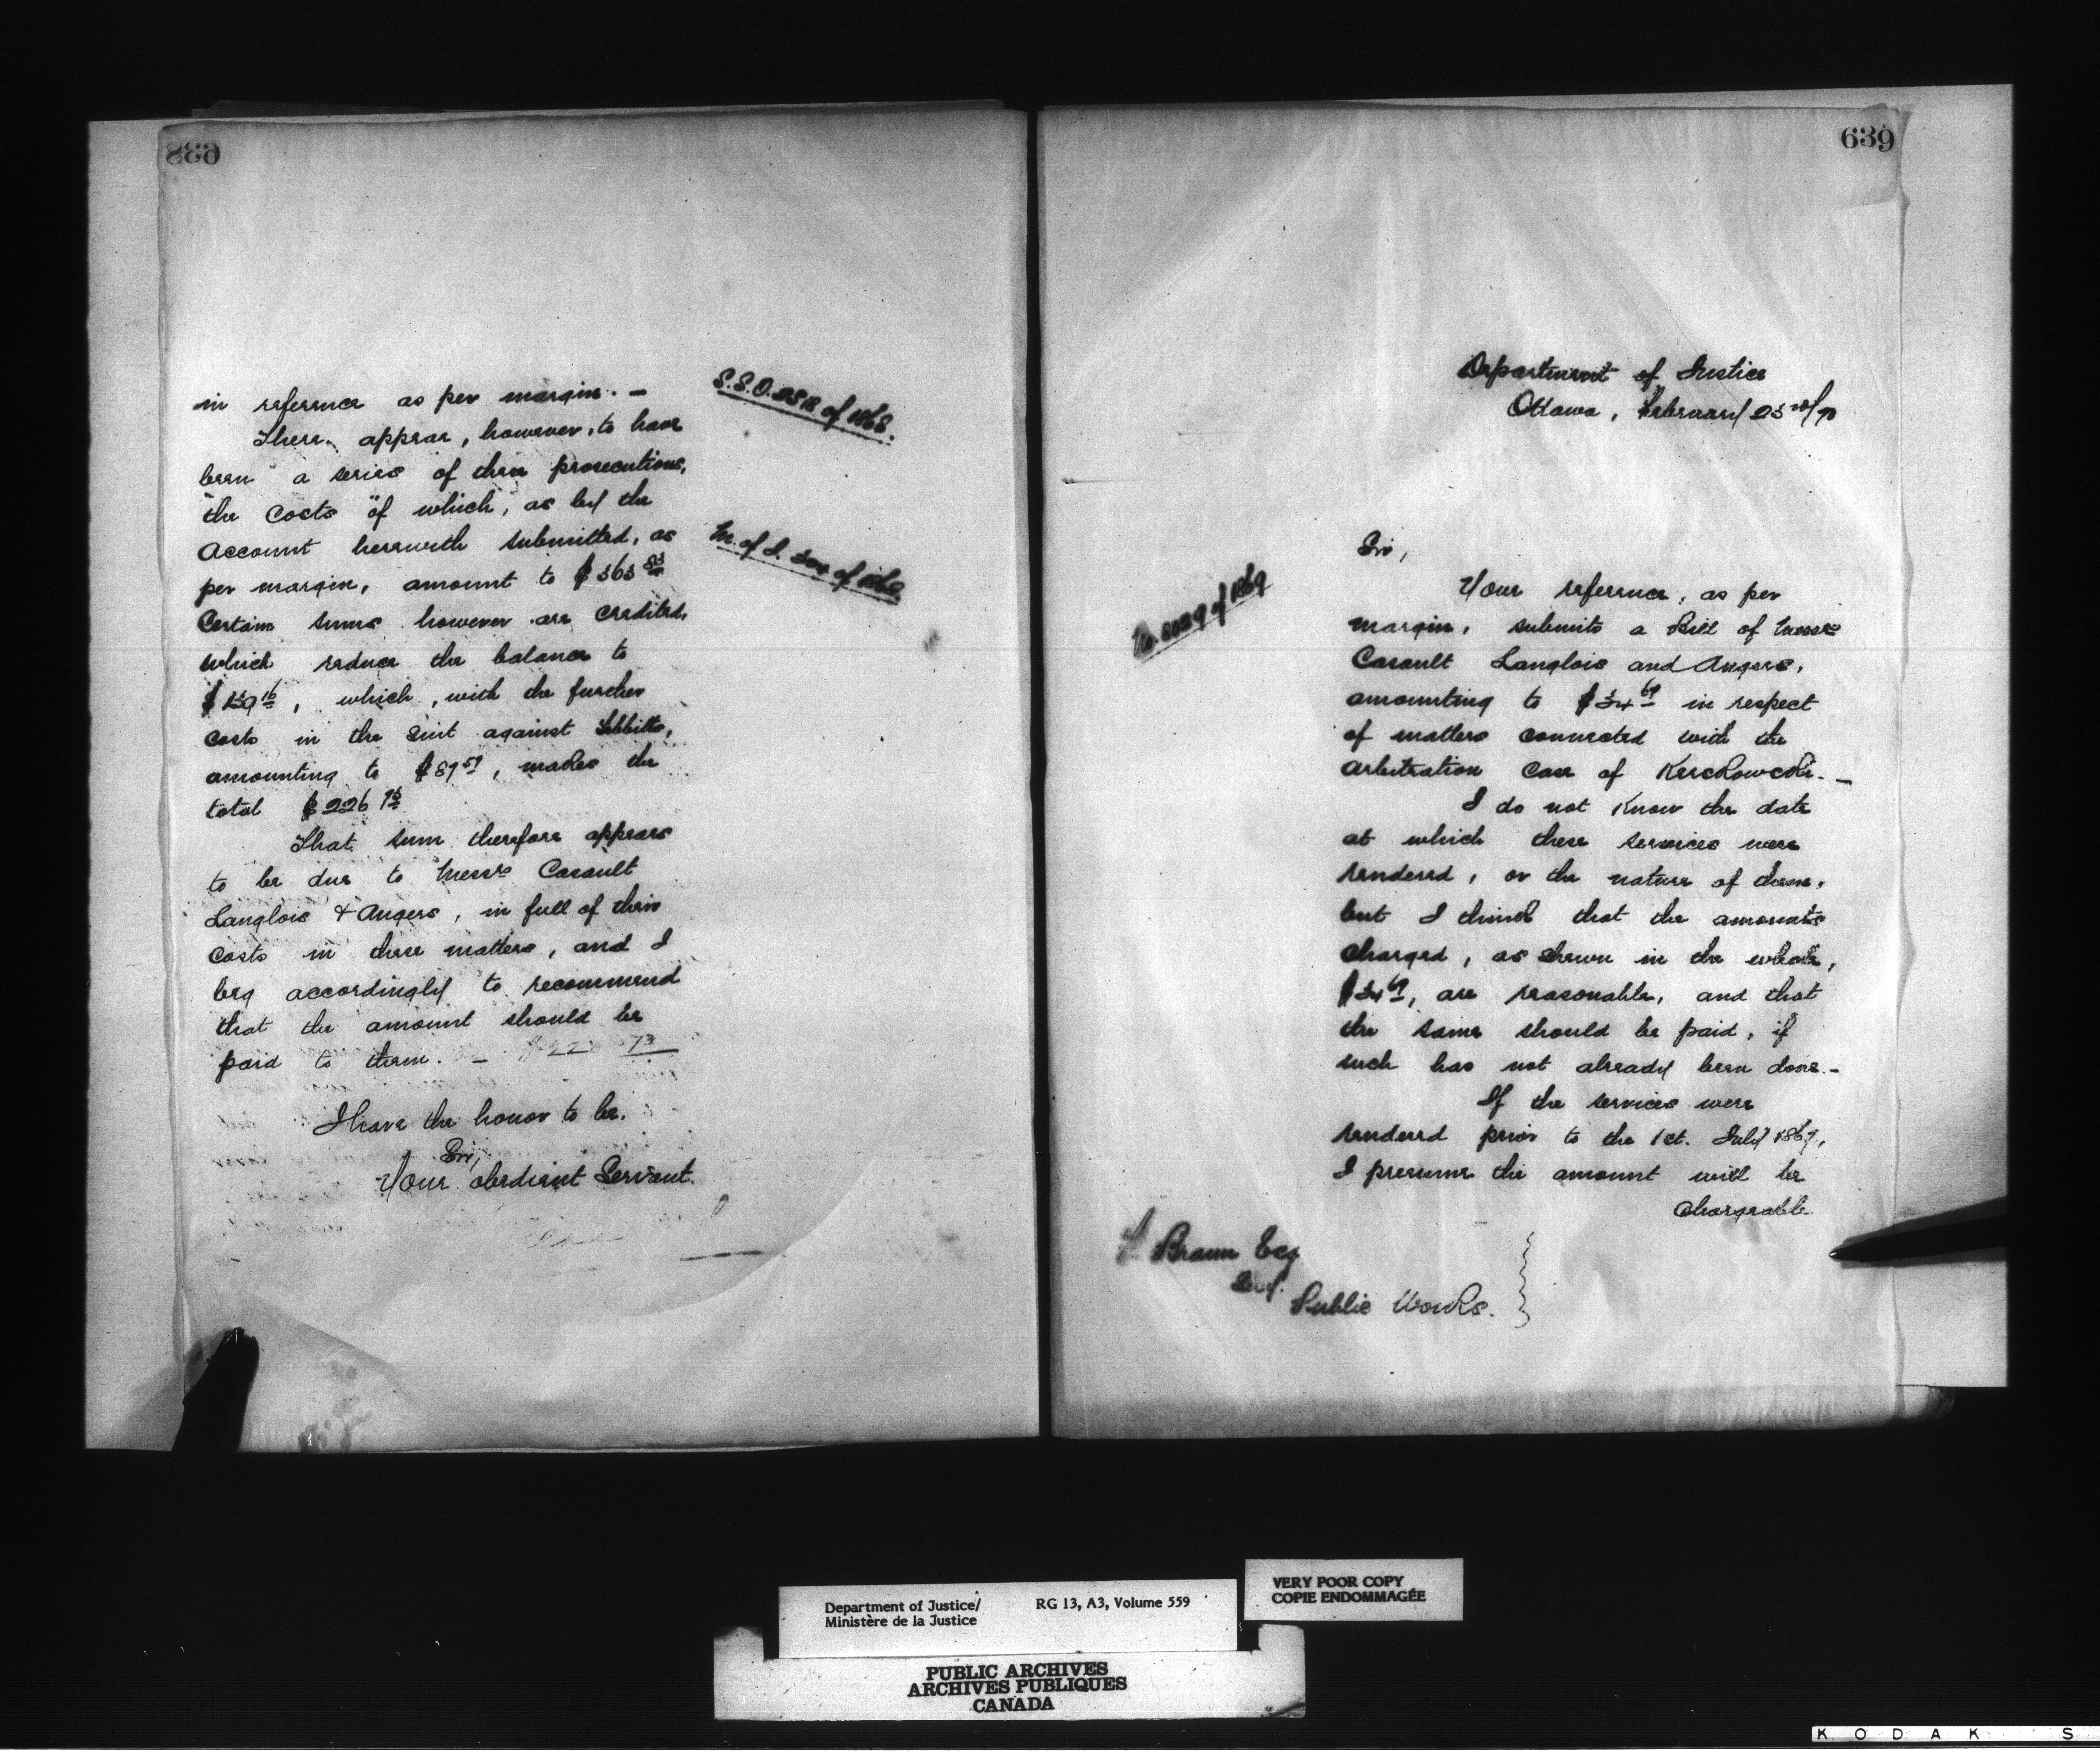 638
in reference as per margin. —
S.S.O. 2512 of 1868.
There appear, however, to have
been a series of these prosecutions,
the Costs of which, as by the
Account herewith submitted, as
M. of J. of 1868.
per margin, amount to $363 83
Certain sums however are credited,
which reduce the balance to
$139 16, which, with the further
costs in the Suit against
amounting to $87 59, makes the
total $226 75
That sum therefore appears
to be due to Messrs Casault
Langlois & Angers, in full of their
Costs in these matters, and I
beg accordingly to recommend
that the amount should be
paid to them. —
I have the honor to be,
Sir,
Your obedient Servant.
639
Department of Justice
Ottawa, February 23rd/70
Sir,
No. 8029 of 1869
Your reference, as per
margin, submits a Bill of Messrs
Casault Langlois and Angers,
amounting to $34 69 in respect
of matters connected with the
arbitration case of Kerckowski. —
I do not Know the date
at which these services were
rendered, or the nature of them,
but I think that the amounts
charged, as shewn in the whole,
$34 69, are reasonable, and that
the same should be paid, if
such has not already been done. —
If the services were
rendered prior to the 1st. July 1867,
I presume the amount will be
chargeable
F. Braun Esq
Secy.
Public Works.
Department of Justice/ RG 13, A3, Volume 559
Ministère de la Justice
VERY POOR COPY
COPIE ENDOMMAGÉE
PUBLIC ARCHIVES
ARCHIVES PUBLIQUES
CANADA
KODAK S